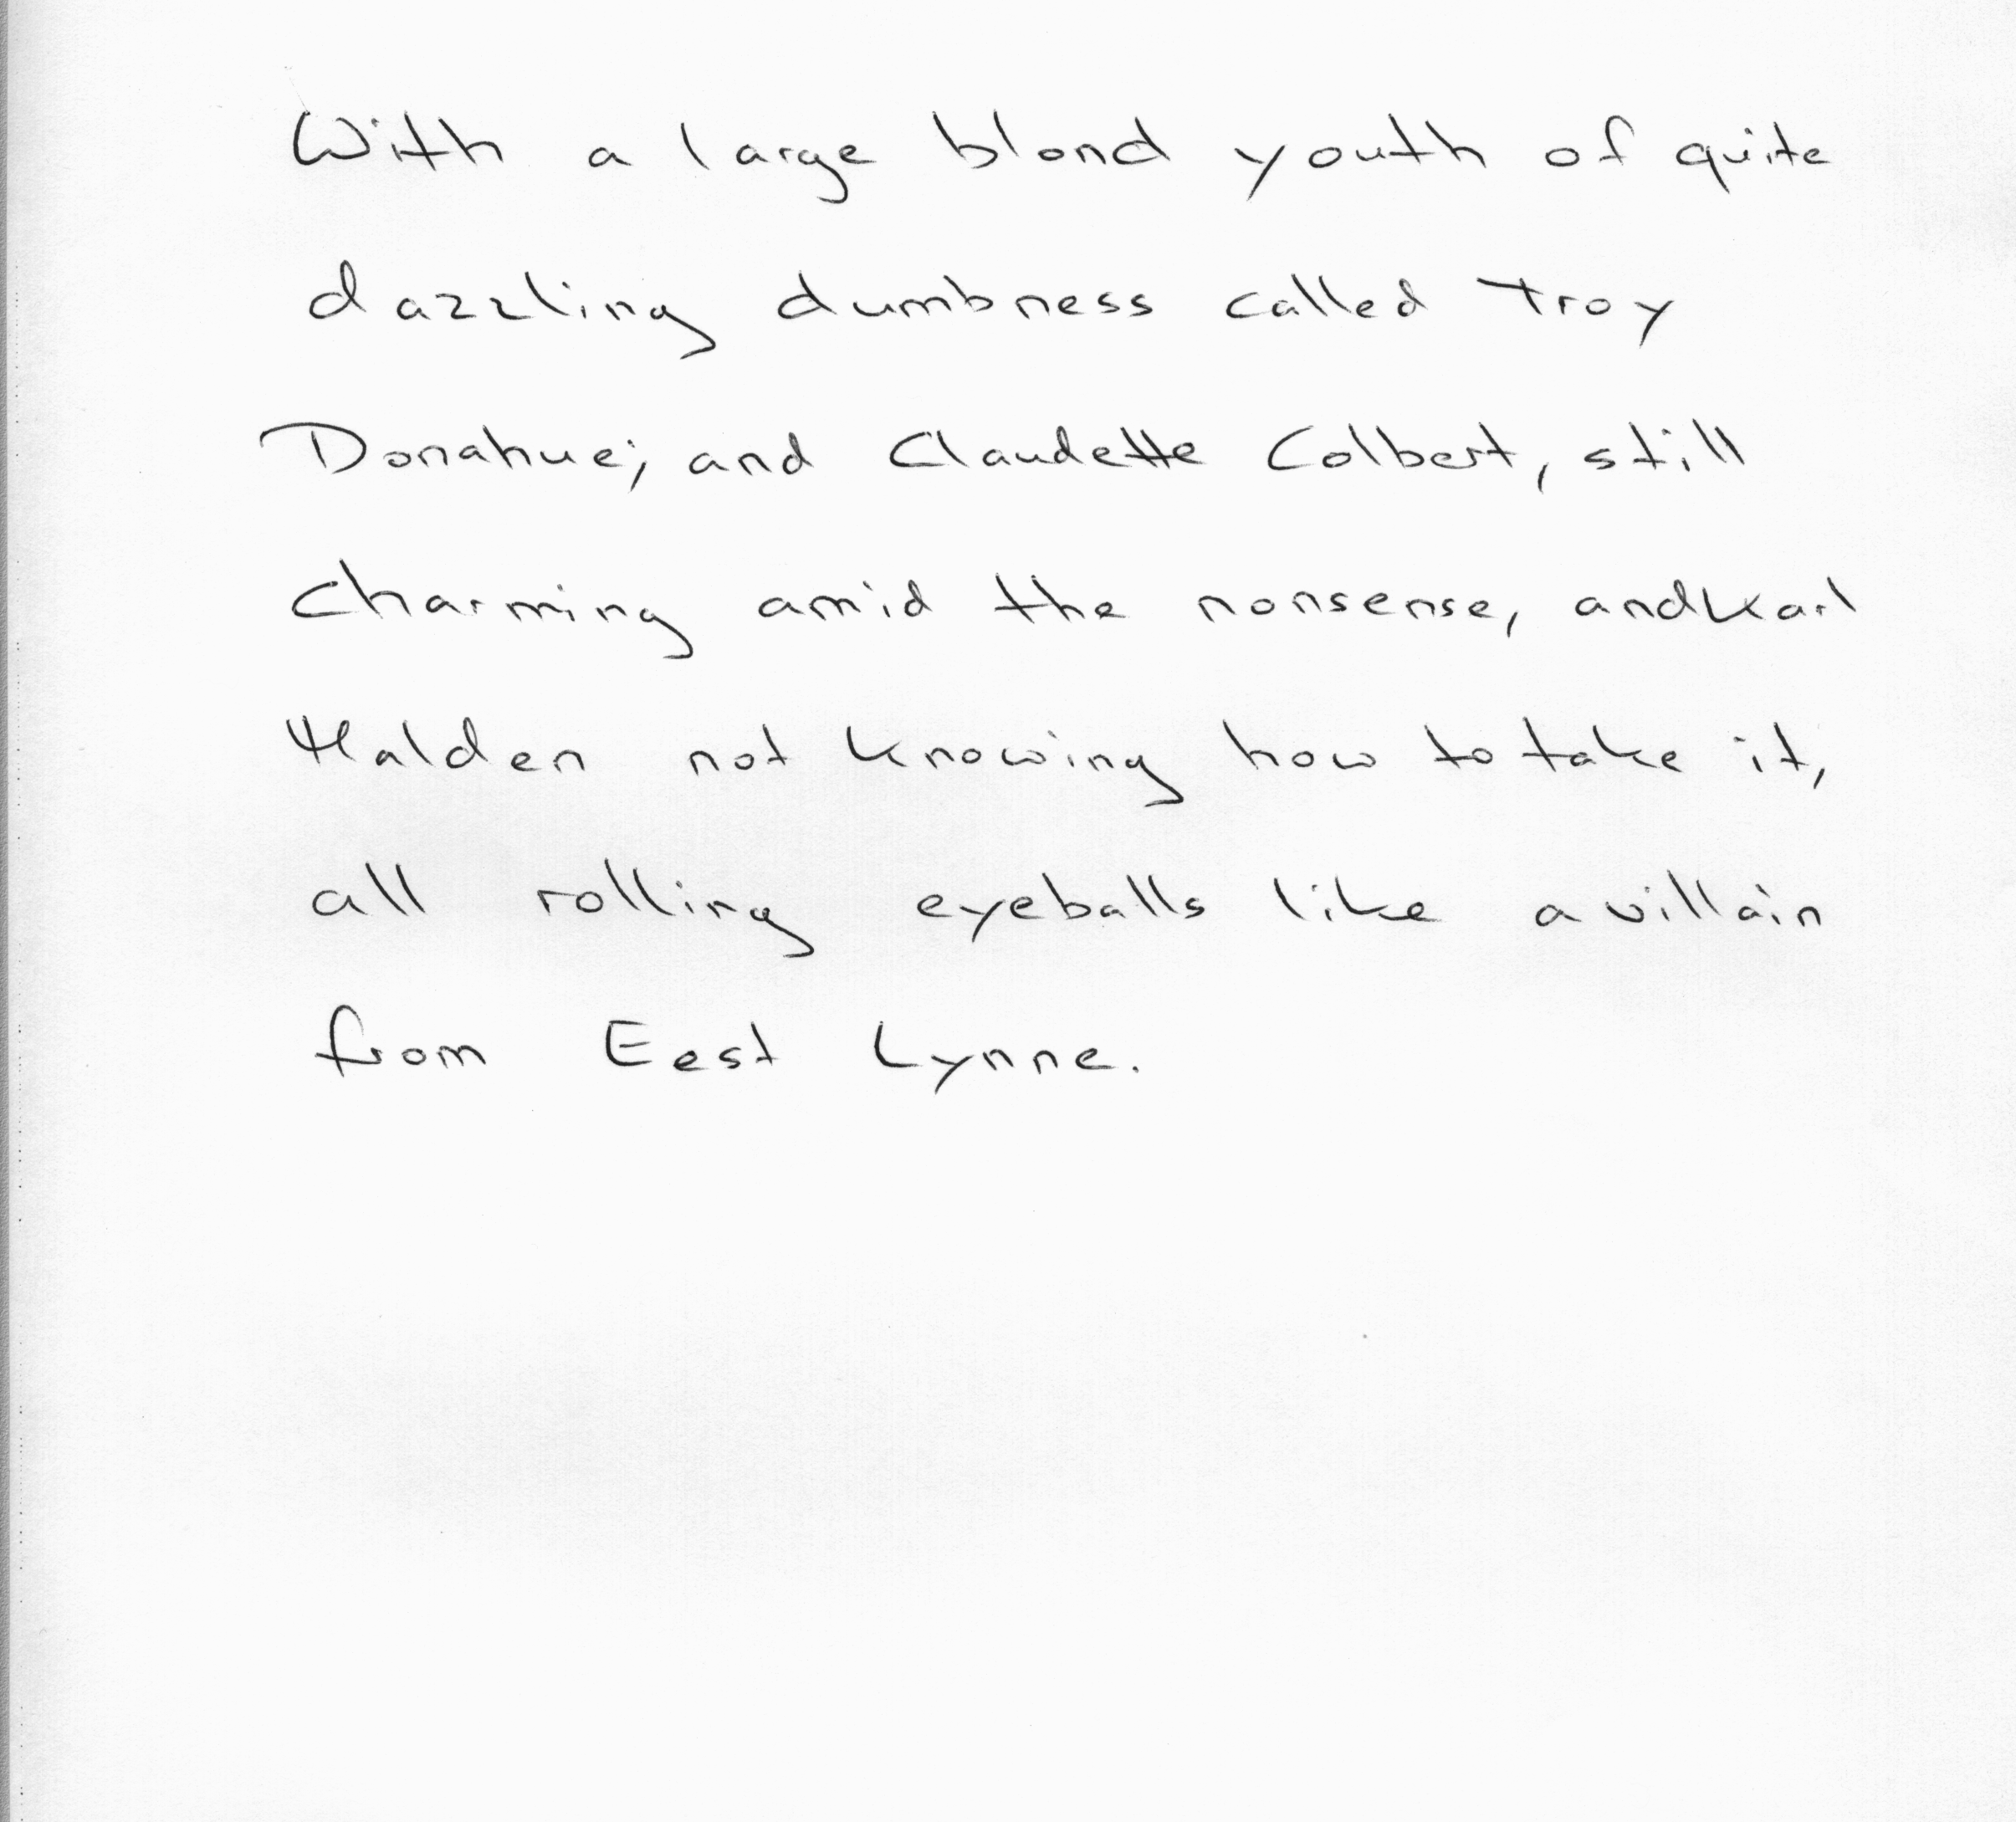 With a large blond youth of quite
dazzling dumbness called Troy
Donahue; and Claudette Colbert, still
charming amid the nonsense, and Karl
Halden not knowing how to take it,
all rolling eyeballs like a villain
from Eest Lynne.